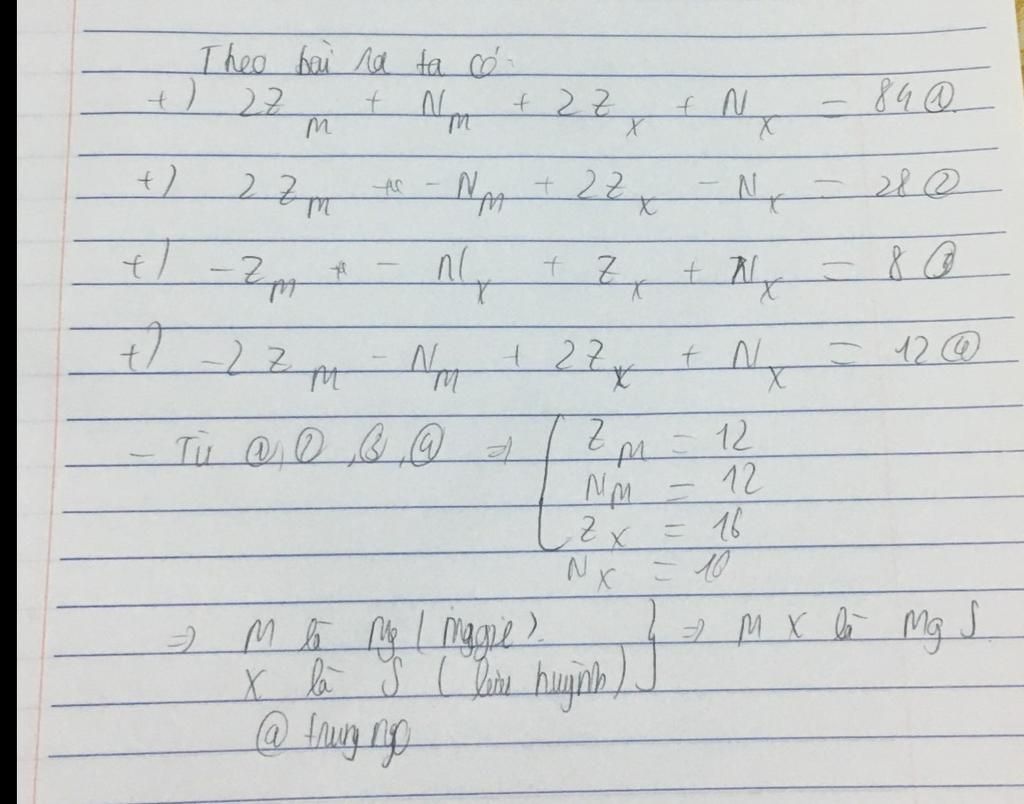 Theo bài ra ta có:
+) 2Z_M + N_M + 2Z_X + N_X = 84 ①
+) 2Z_M - N_M + 2Z_X - N_X = 28 ②
+) -Z_M - N_X + Z_X + N_X = 8 ③
+) -2Z_M - N_M + 2Z_X + N_X = 12 ④
- Từ ①, ②, ③, ④ ⇒ { Z_M = 12
N_M = 12
Z_X = 16
N_X = 10
⇒ M là Mg (Maggie).
X là S (lưu huỳnh) } ⇒ M X là Mg S.
@ trung ngo